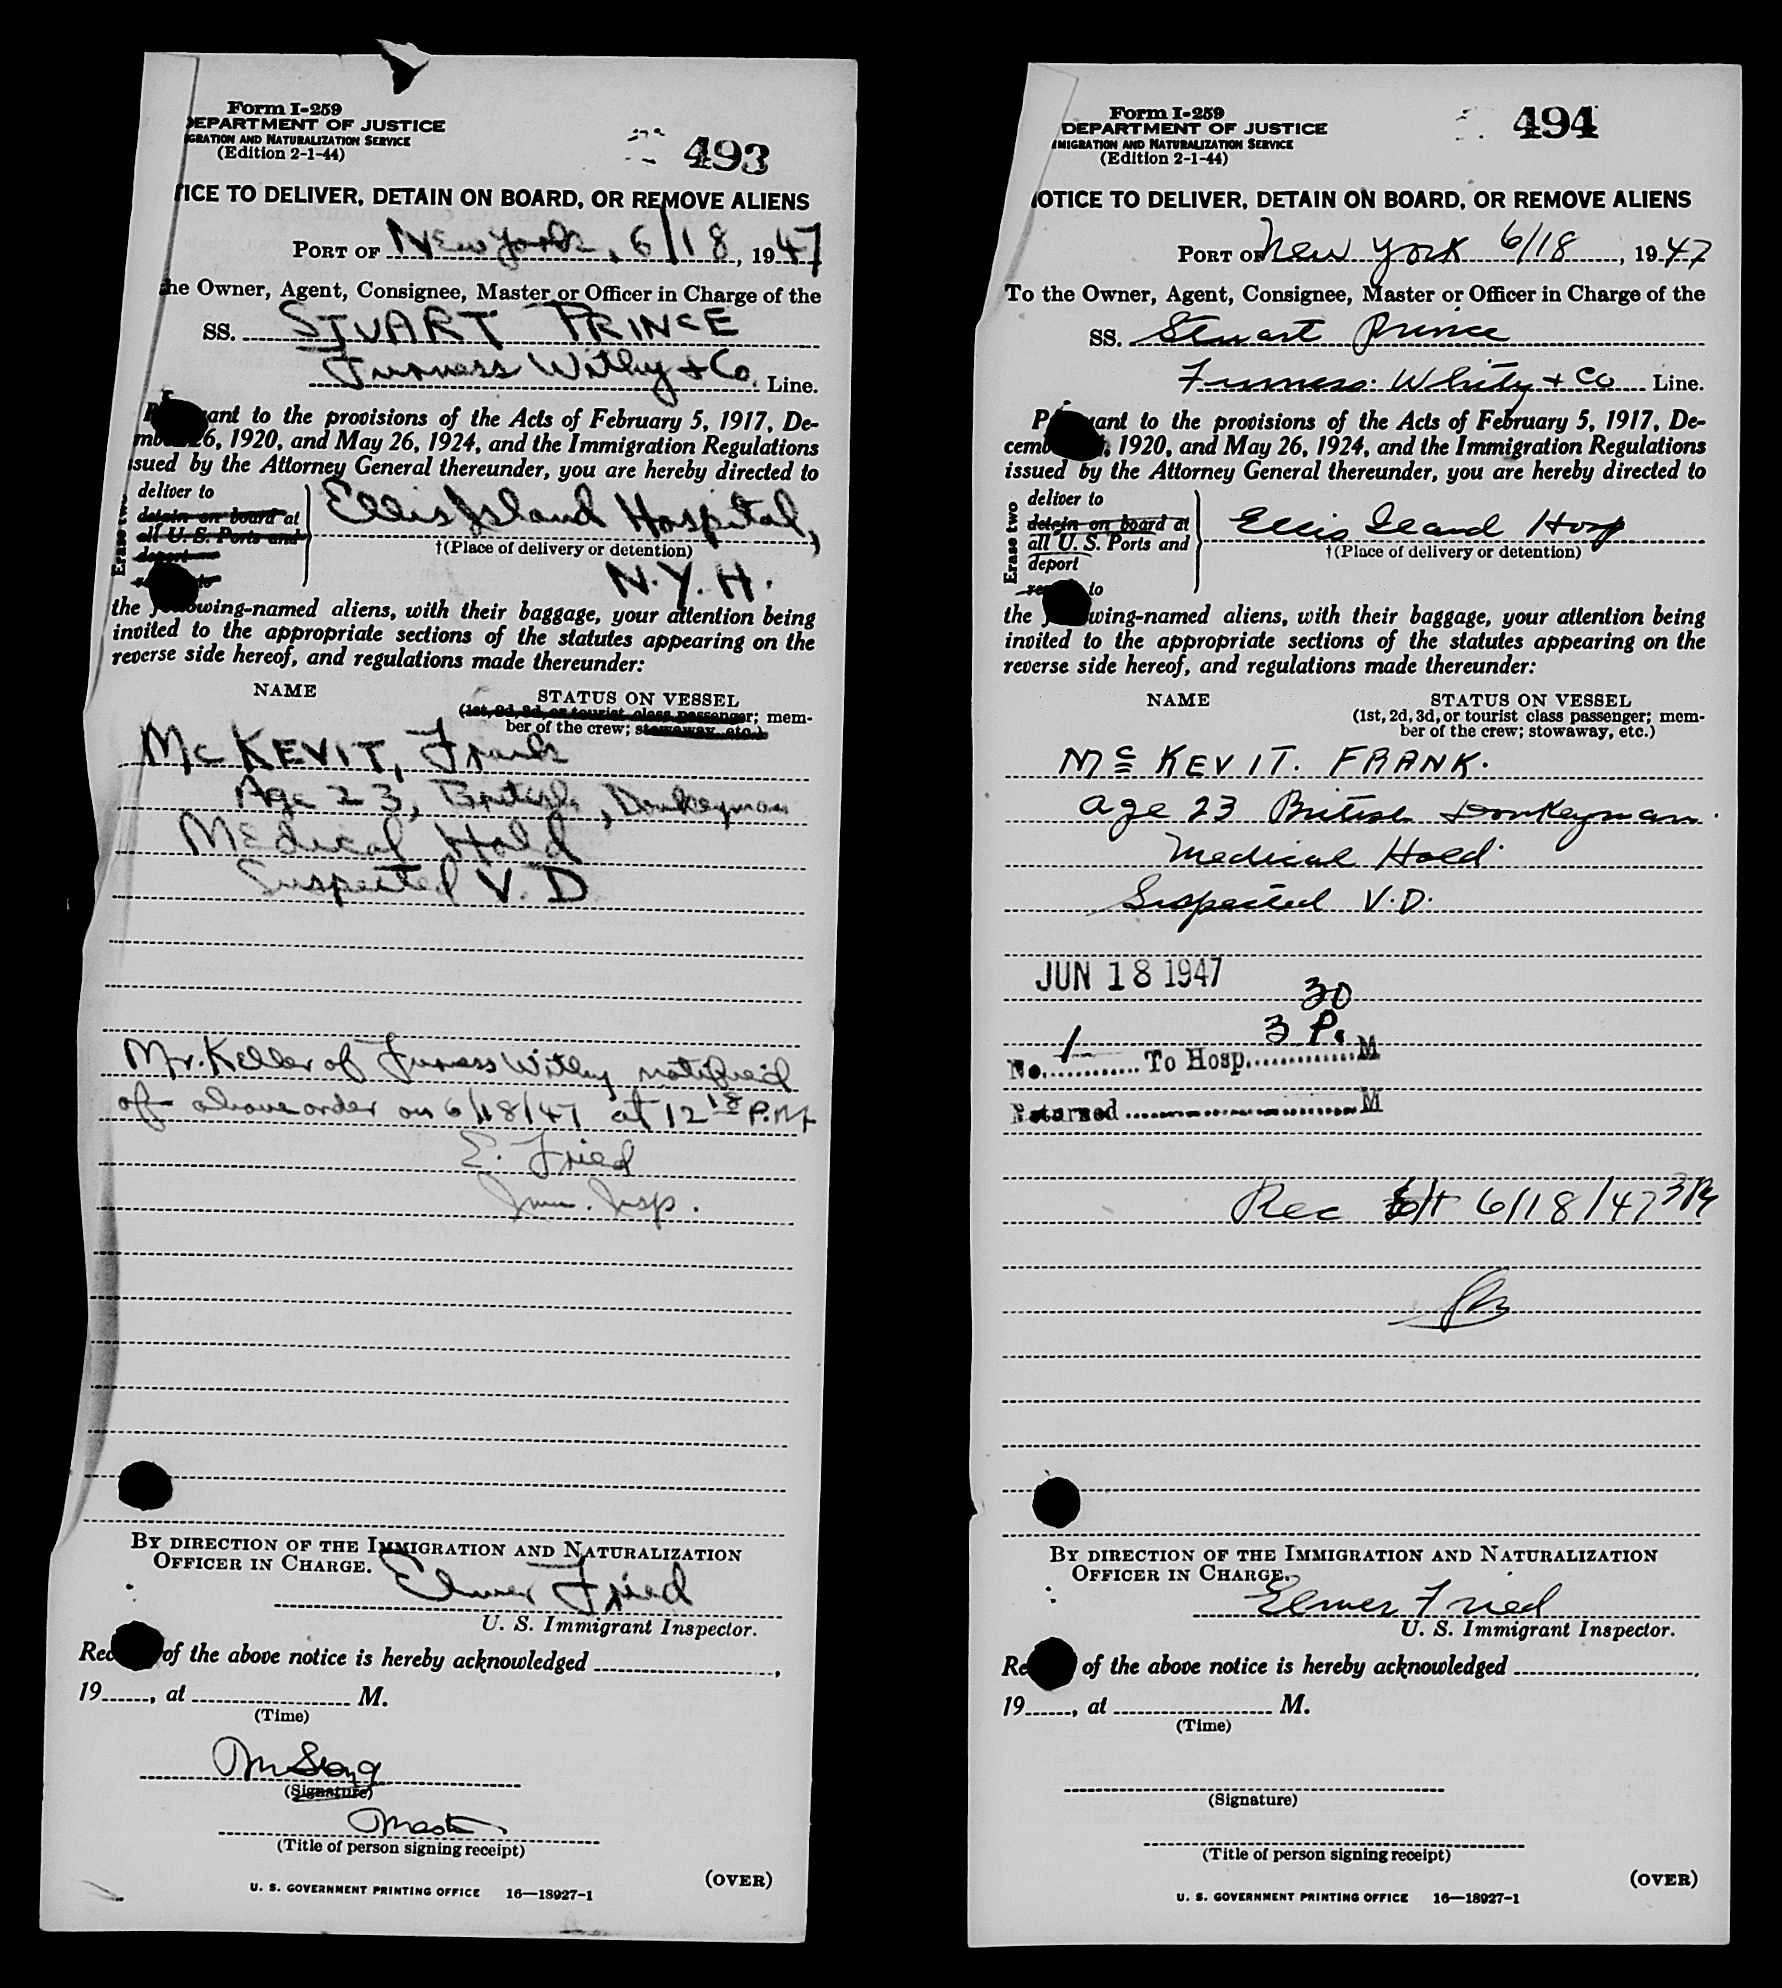 Form I-259
DEPARTMENT OF JUSTICE
GRATION AND NATURALIZATION SERVICE
(Edition 2-1-44)
493
TICE TO DELIVER, DETAIN ON BOARD, OR REMOVE ALIENS
PORT OF New York, 6/18, 1947
the Owner, Agent, Consignee, Master or Officer in Charge of the
SS. STUART PRINCE
Furness Withy & Co. Line.
P ant to the provisions of the Acts of February 5, 1917, De-
mb 26, 1920, and May 26, 1924, and the Immigration Regulations
sued by the Attorney General thereunder, you are hereby directed to
Erase two
deliver to
detain on board at
all U. S. Ports and
deport
re to
Ellis Island Hospital,
†(Place of delivery or detention)
N.Y.H.
the f owing-named aliens, with their baggage, your attention being
invited to the appropriate sections of the statutes appearing on the
reverse side hereof, and regulations made thereunder:
NAME
STATUS ON VESSEL
(1st, 2d, 3d, or tourist class passenger; mem-
ber of the crew; stowaway, etc.)
McKEVIT, Frank
Age 23, British, Donkeyman
Medical Hold
Suspected V.D
Mr. Keller of Furness Withy notified
of above order on 6/18/47 at 12 18 P.M
E. Fried
Imm. Insp.
BY DIRECTION OF THE IMMIGRATION AND NATURALIZATION
OFFICER IN CHARGE.
Elmer Fried
U. S. Immigrant Inspector.
Rec of the above notice is hereby acknowledged ,
19 , at M.
(Time)
(Signature)
Master
(Title of person signing receipt)
(OVER)
U. S. GOVERNMENT PRINTING OFFICE 16—18927-1
Form I-259
DEPARTMENT OF JUSTICE
MIGRATION AND NATURALIZATION SERVICE
(Edition 2-1-44)
494
OTICE TO DELIVER, DETAIN ON BOARD, OR REMOVE ALIENS
PORT OF New York 6/18, 1947
To the Owner, Agent, Consignee, Master or Officer in Charge of the
SS. Stuart Prince
Furness Whity & Co Line.
P ant to the provisions of the Acts of February 5, 1917, De-
cemb , 1920, and May 26, 1924, and the Immigration Regulations
issued by the Attorney General thereunder, you are hereby directed to
Erase two
deliver to
detain on board at
all U. S. Ports and
deport
re to
Ellis Iland Hosp
†(Place of delivery or detention)
the f wing-named aliens, with their baggage, your attention being
invited to the appropriate sections of the statutes appearing on the
reverse side hereof, and regulations made thereunder:
NAME
STATUS ON VESSEL
(1st, 2d, 3d, or tourist class passenger; mem-
ber of the crew; stowaway, etc.)
McKEVIT. FRANK.
age 23 British Donkeyman.
Medical Hold.
Suspected V.D.
JUN 18 1947
No. 1 To Hosp. 3 30 P. M
Returned M
Rec 6/18/47
BY DIRECTION OF THE IMMIGRATION AND NATURALIZATION
OFFICER IN CHARGE.
Elmer Fried
U. S. Immigrant Inspector.
Re of the above notice is hereby acknowledged ,
19 , at M.
(Time)
(Signature)
(Title of person signing receipt)
(OVER)
U. S. GOVERNMENT PRINTING OFFICE 16—18927-1